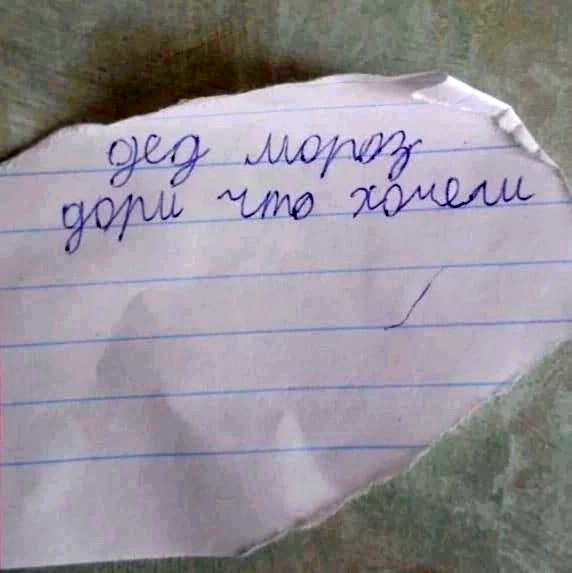 дед мороз
дори что хочели